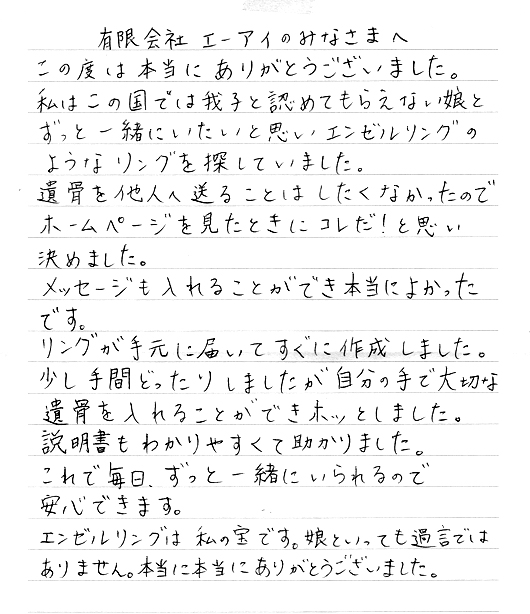 有限会社 エーアイのみなさまへ
この度は本当にありがとうございました。
私はこの国では我子と認めてもらえない娘と
ずっと一緒にいたいと思いエンゼルリングの
ようなリングを探していました。
遺骨を他人へ送ることはしたくなかったので
ホームページを見たときにコレだ!と思い
決めました。
メッセージも入れることができ本当によかった
です。
リングが手元に届いてすぐに作成しました。
少し手間どったりしましたが自分の手で大切な
遺骨を入れることができホッとしました。
説明書もわかりやすくて助かりました。
これで毎日、ずっと一緒にいられるので
安心できます。
エンゼルリングは私の宝です。娘といっても過言では
ありません。本当に本当にありがとうございました。